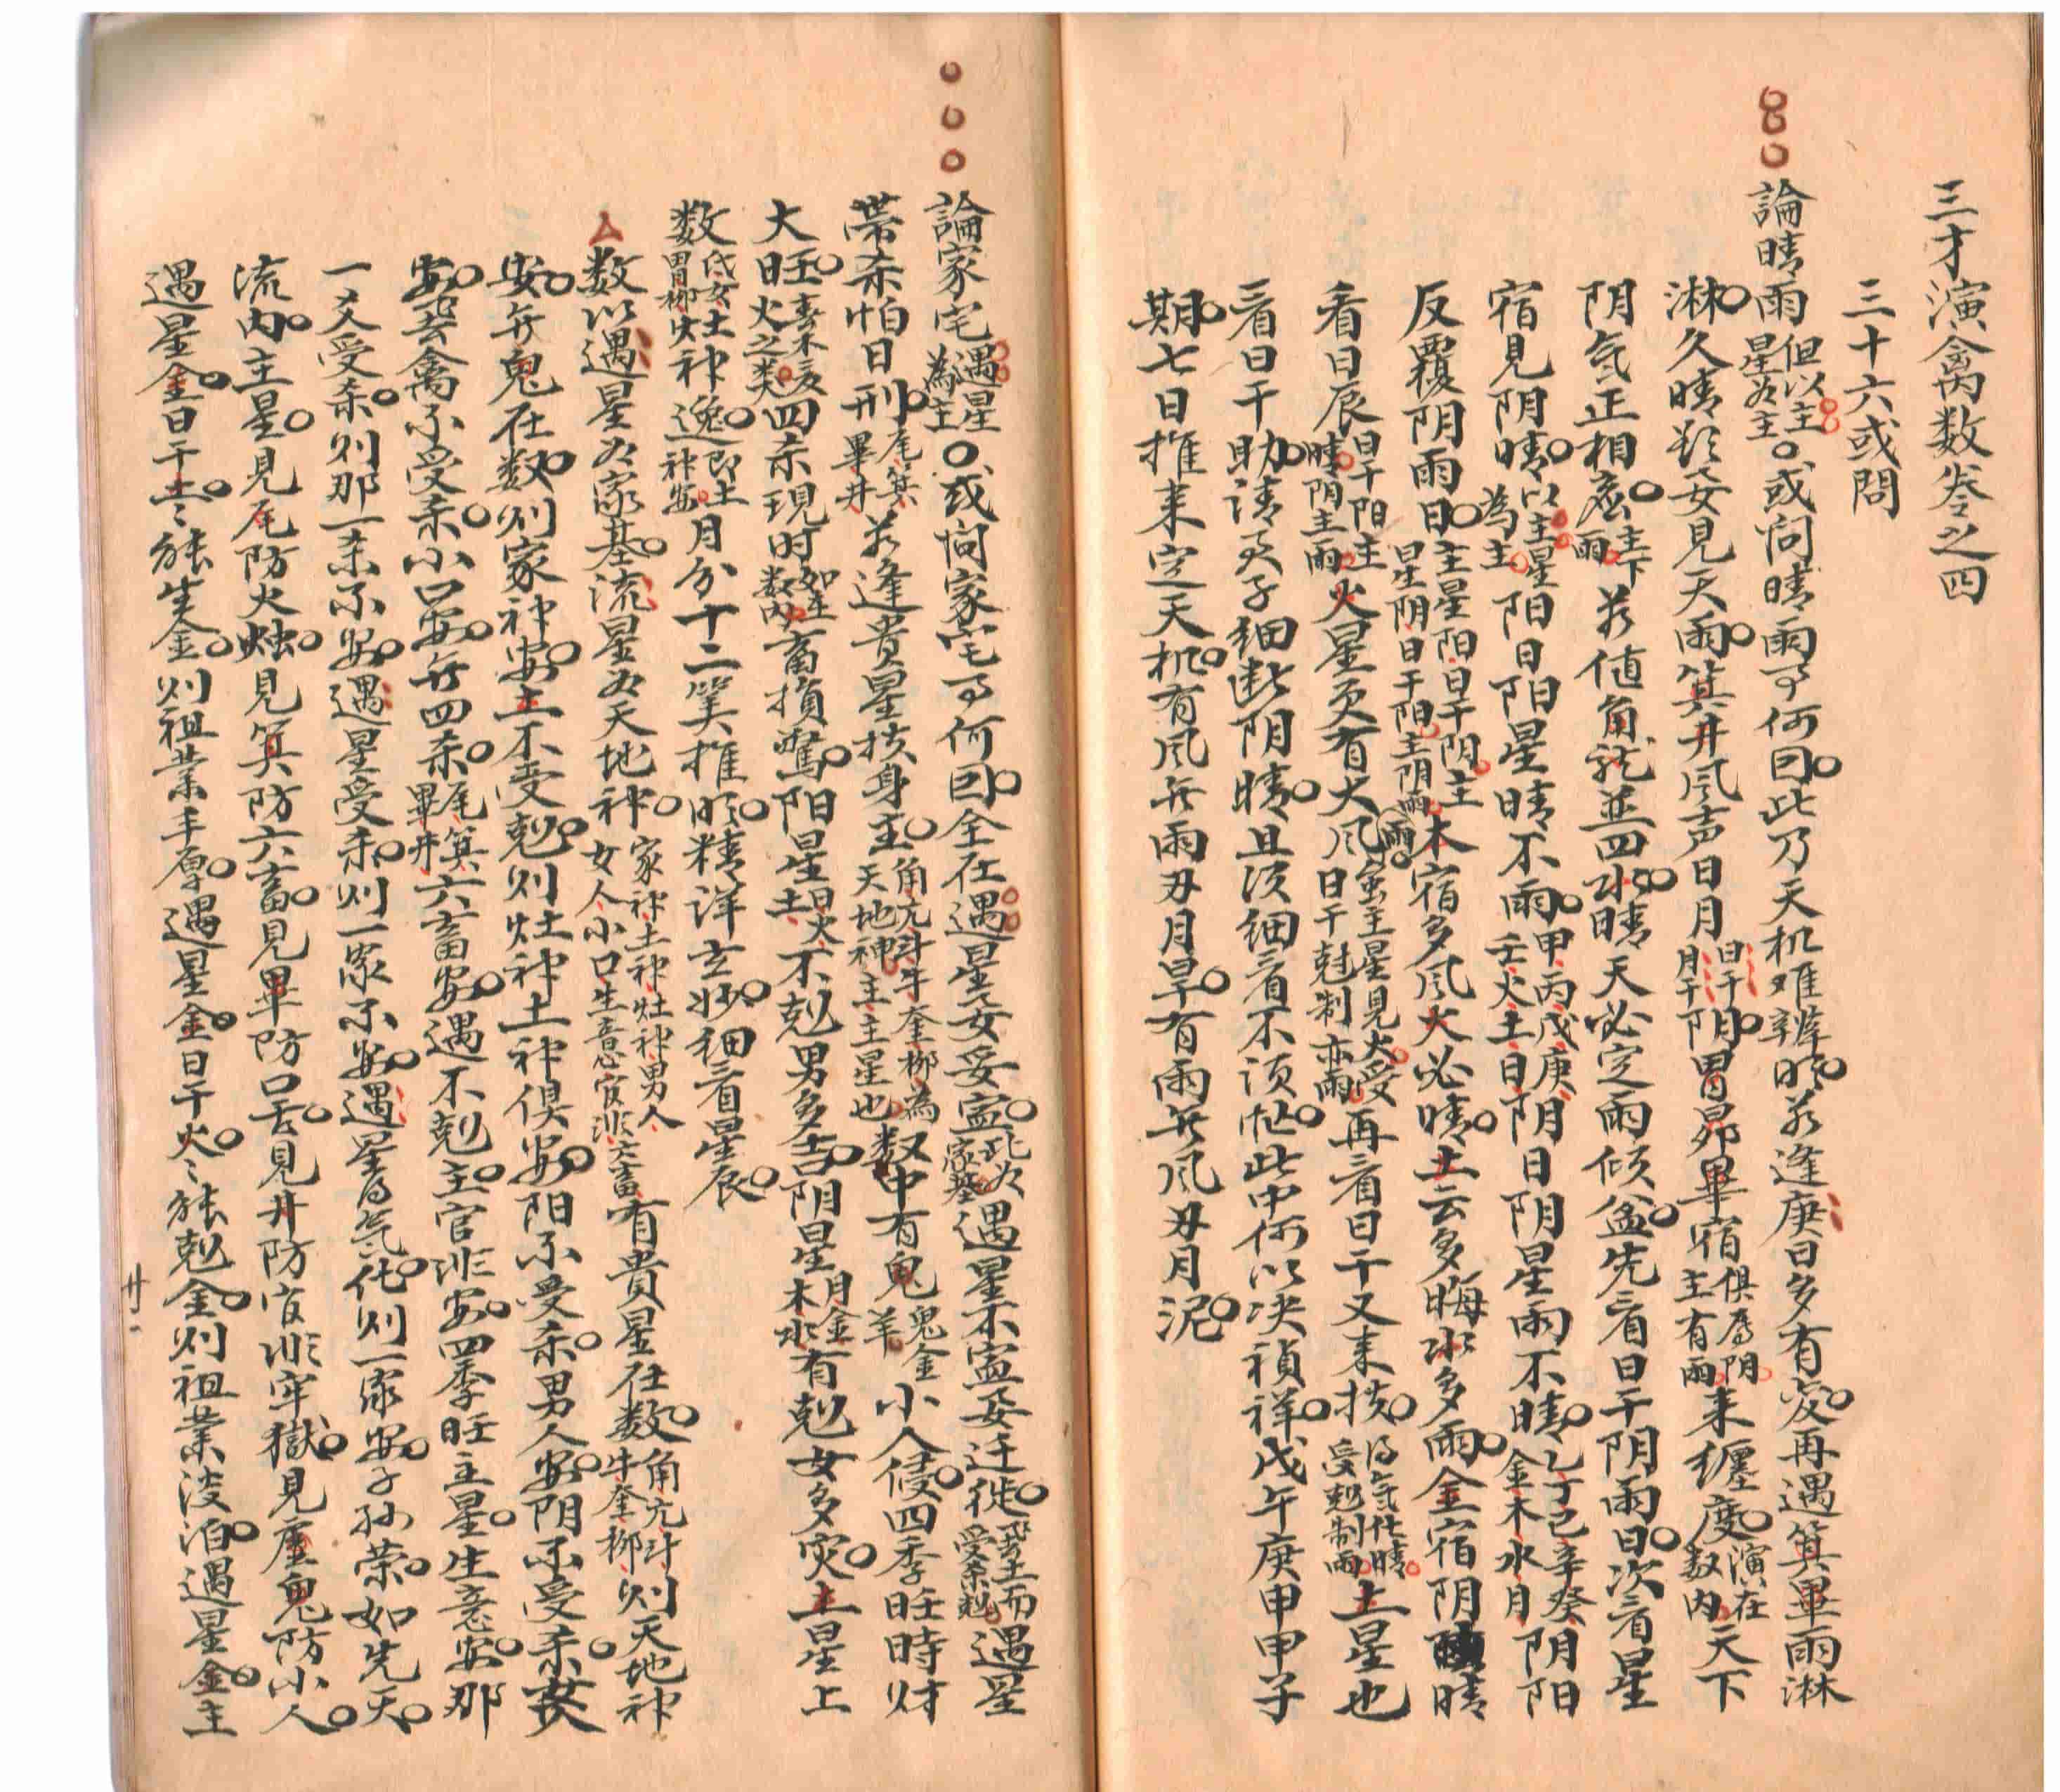 三才演禽数卷之四
三十六或問
論晴雨但以主星为主或问晴雨事何因此乃天机难辨明若逢庚日多有变再遇箕畢雨淋
淋久晴欲安見天雨箕井风声日月日干月干阴胃昴畢宿俱為阴主有雨来纏度演在数内天下
阴气正相应主下雨若值角龙並四水晴天必定雨倾盆先看日干阴雨日次看星
宿見阴晴以主星為主阳日阳星晴不雨甲丙戊庚壬火土日阴日阴星雨不晴乙丁己辛癸金木水月阴阳
反覆阴雨日主星阳日干阴主星阴日干阳主阴雨木宿多风火必晴土云多晦水多雨金宿阴晴
看日辰日干阳主晴阴主雨火星更有大风雨虽主星見火受日干尅制亦雨再看日干又来扶得气化晴受尅制雨土星也
看日干助请君子细断阴晴且须细看不须忙此中何以决祯祥戊午庚申甲子
期七日推来定天机有风无雨丑月旱有雨无风丑月泥
論家宅遇星為主或问家宅事何因全在遇星安妥寧此为家基遇星不寧妄迁徙受杀尅遇星
带杀怕日刑尾箕畢井若逢贵星扶身主角亢斗牛奎柳為天地神主主星也数中有鬼鬼金羊小人侵四季旺時财
大旺春木夏火之类四杀現时如在数内畜損驚阳星日火土不尅男多吉阴星月金木水有尅女多灾土星上
数氐女土胃柳灶神逸即土神安月分十二筭推明精详玄妙细看星辰
数以遇星为家基流星为天地神家神土神灶神男人女人小口生意官非六畜有貴星在数角亢斗牛奎柳则天地神
安无鬼在数则家神安土不受尅则灶神土神俱安阳不受杀男人安阴不受杀女
安禽不受杀小口安无四杀尾箕畢井六畜安遇不尅主官非安四季旺主星生意安那
一爻受杀则那一杀不安遇星受杀则一家不安遇星得气化则一家安子孙荣如先天
流内主星見尾防火烛見箕防六畜見畢防口舌見井防官非牢獄見虚鬼防小人
遇星金日干土土能生金则祖業丰厚遇星金日干火火能尅金则祖業淡泊遇星金主
廿一